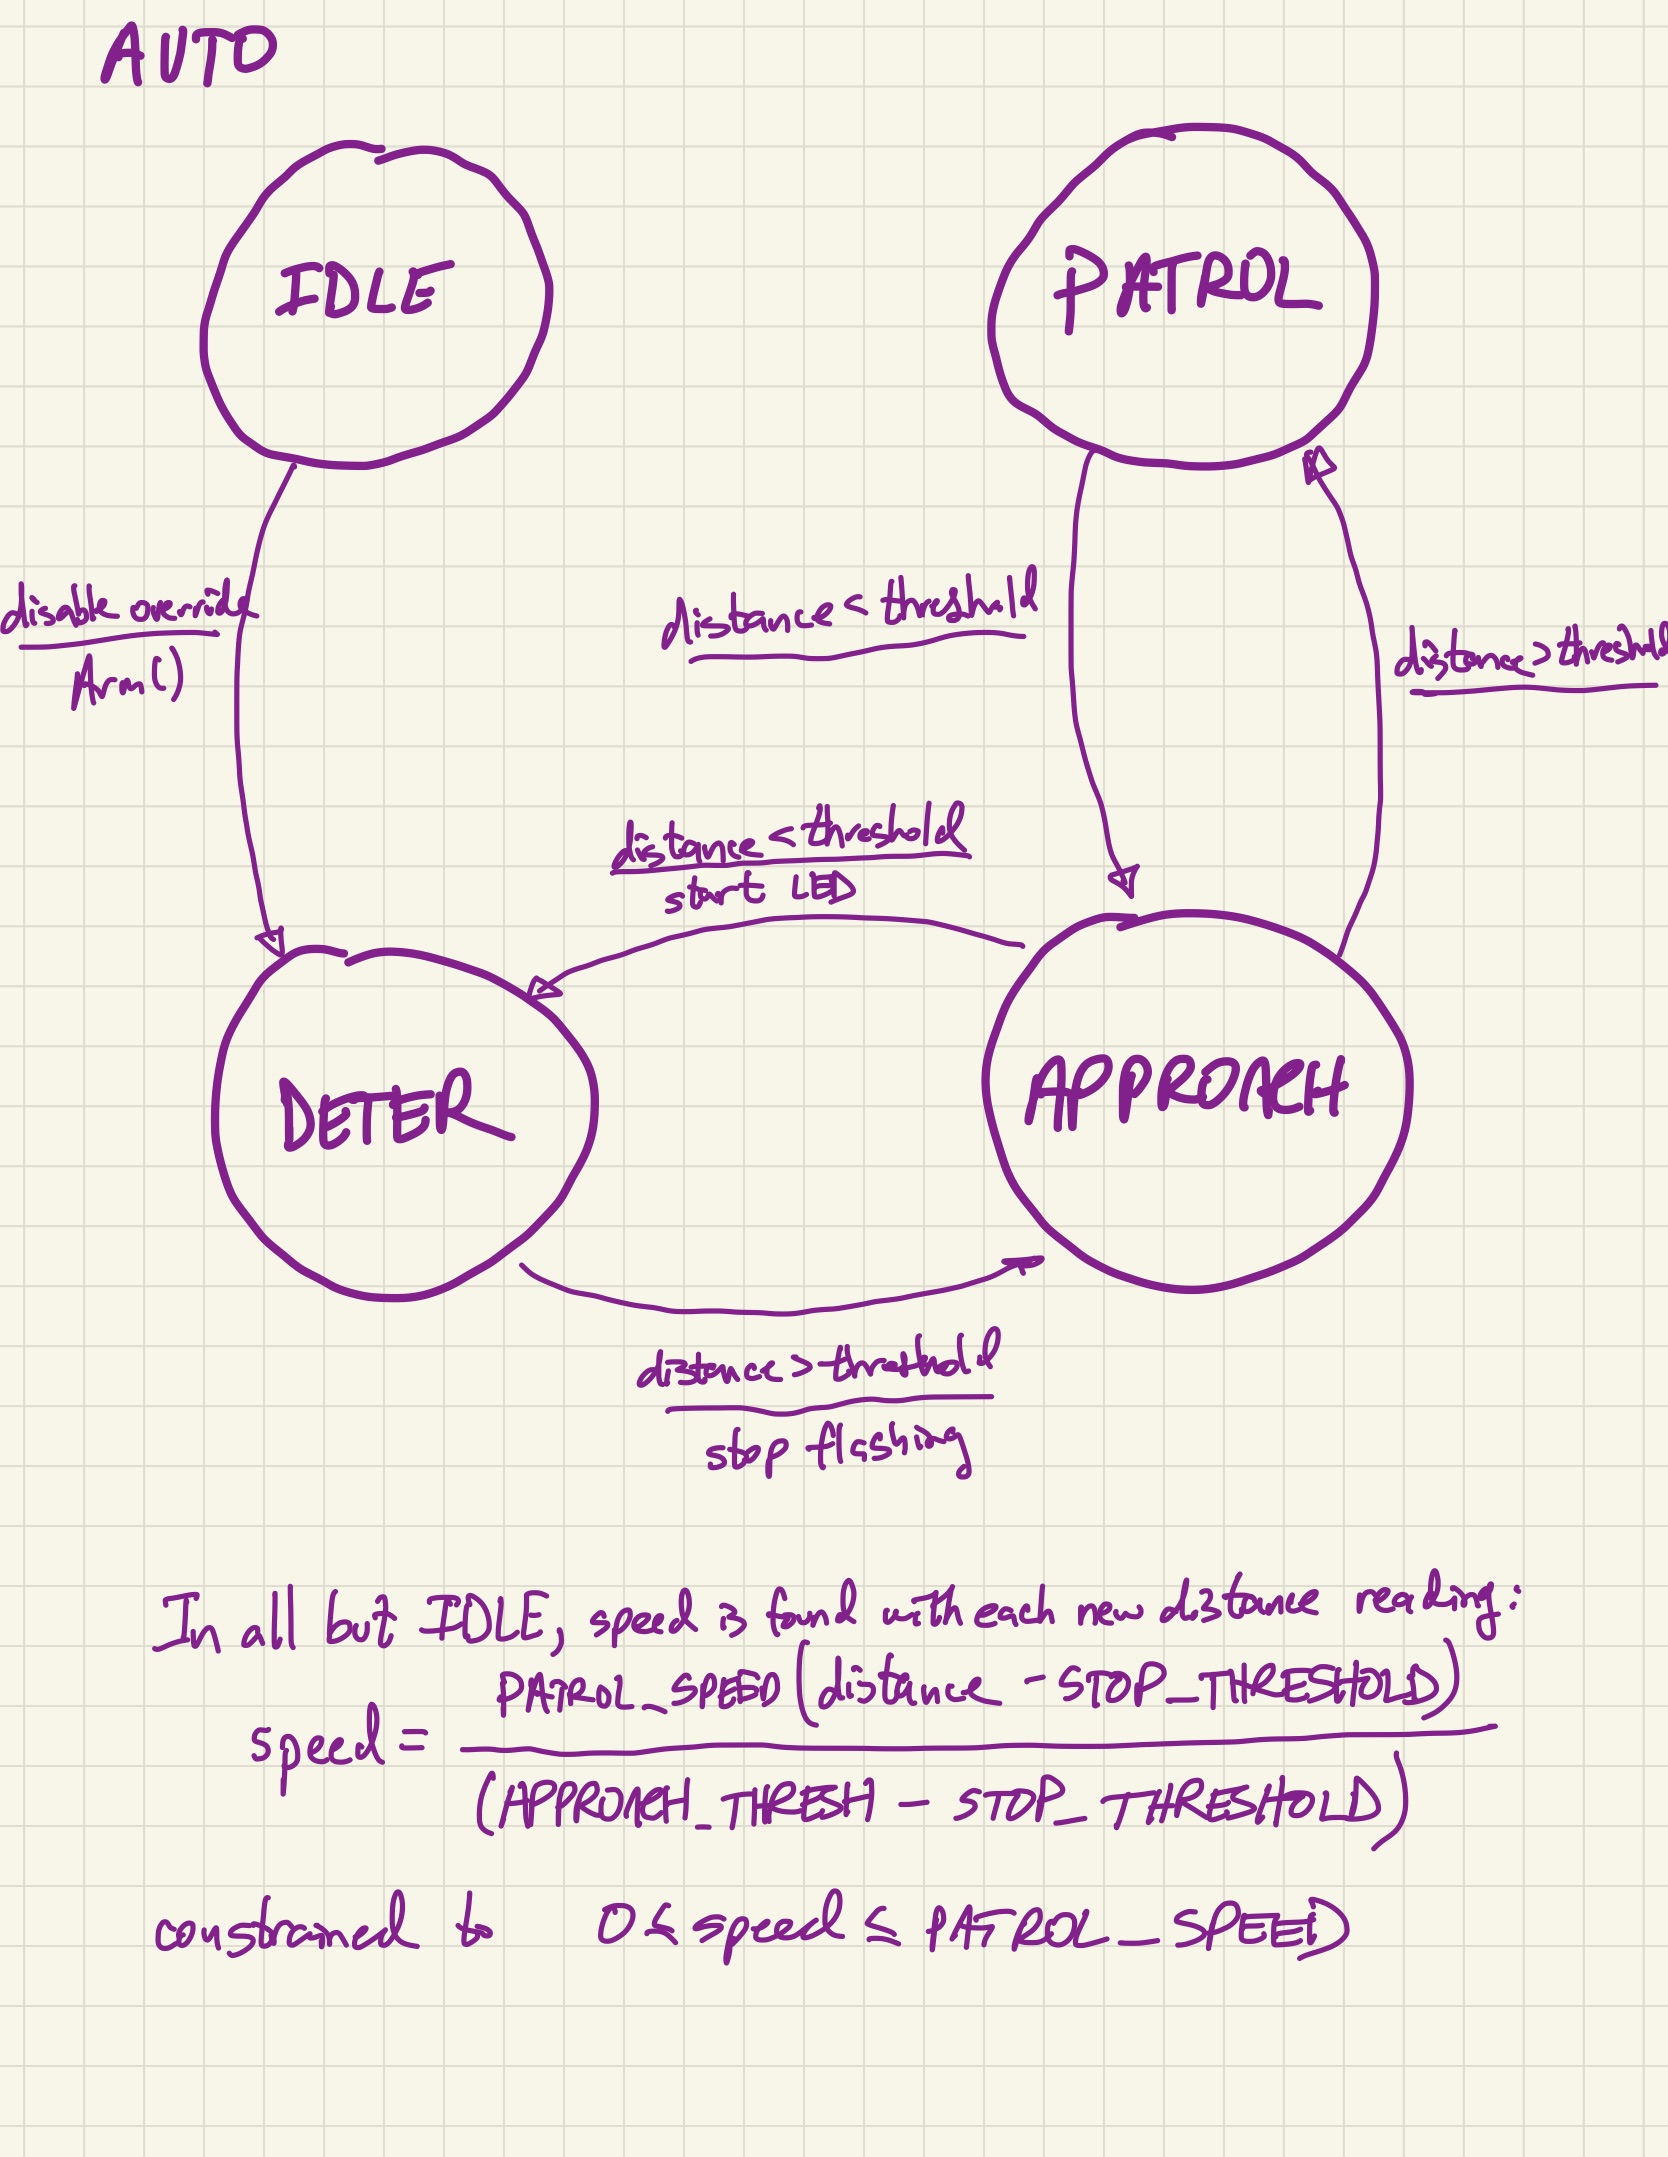 AUTO
IDLE
PATROL
disable override
Arm()
distance < threshold
distance > threshold
distance < threshold
start LED
DETER
APPROACH
distance > threshold
stop flashing
In all but IDLE, speed is found with each new distance reading:
speed = PATROL_SPEED (distance - STOP_THRESHOLD)
(APPROACH_THRESH - STOP_THRESHOLD)
constrained to 0 ≤ speed ≤ PATROL_SPEED